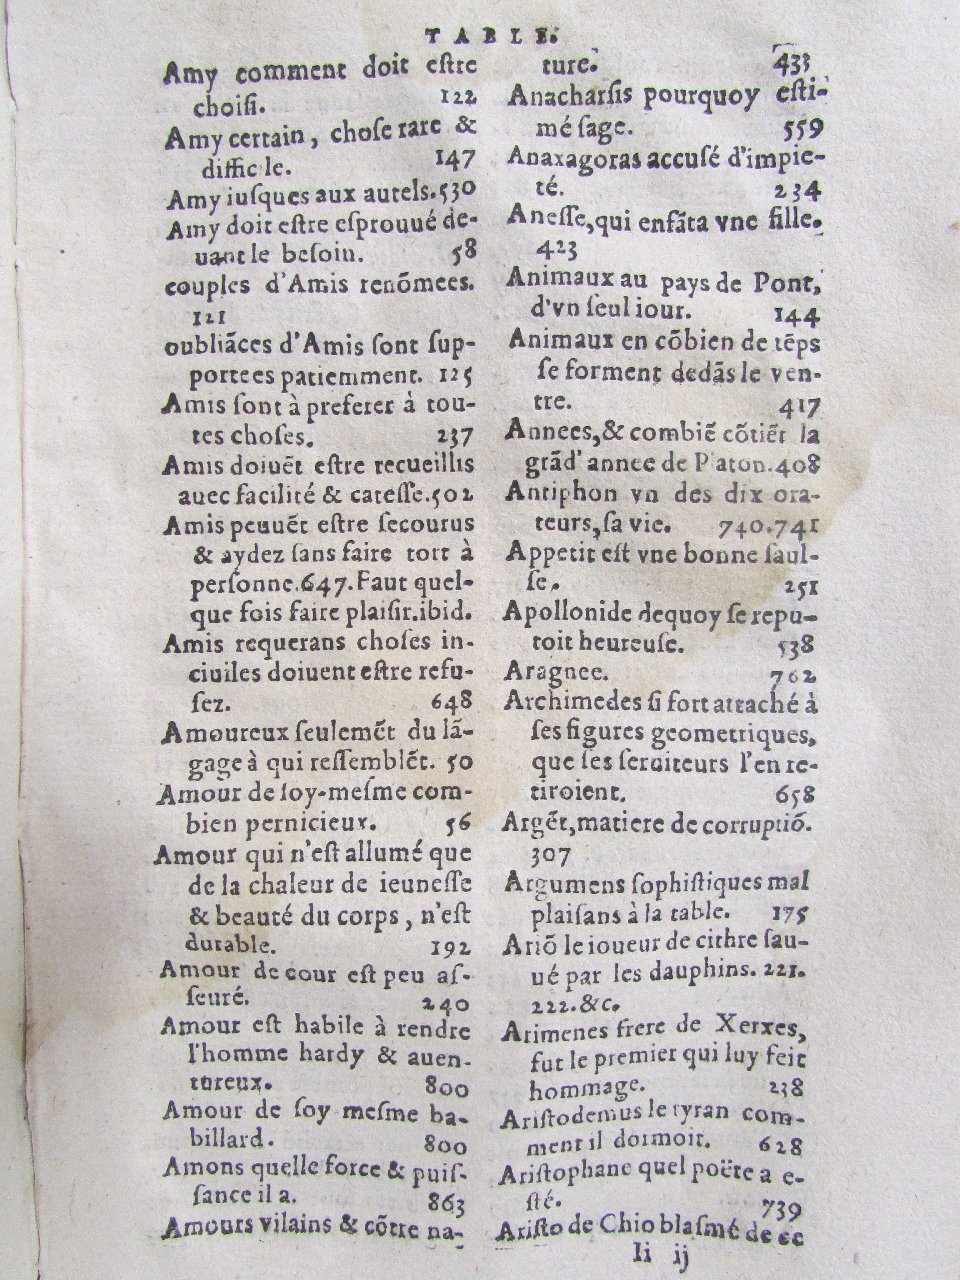 TABLE.
Amy comment doit eſtre
choiſi. 122
Amy certain, choſe rare &
difficile. 147
Amy iuſques aux autels. 530
Amy doit eſtre eſprouué de-
uant le beſoin. 58
couples d'Amis renõmees.
121
oubliãces d'Amis ſont ſup-
portees patiemment. 125
Amis ſont à preferer à tou-
tes choſes. 237
Amis doiuẽt eſtre recueillis
auec facilité & careſſe. 502
Amis peuuẽt eſtre ſecourus
& aydez ſans faire tort à
perſonne. 647. Faut quel-
que fois faire plaiſir. ibid.
Amis requerans choſes in-
ciuiles doiuent eſtre refu-
ſez. 648
Amoureux ſeulemẽt du lã-
gage à qui reſſemblẽt. 50
Amour de ſoy-meſme com-
bien pernicieux. 56
Amour qui n'eſt allumé que
de la chaleur de ieuneſſe
& beauté du corps, n'eſt
durable. 192
Amour de cour eſt peu aſ-
ſeuré. 240
Amour eſt habile à rendre
l'homme hardy & auen-
tureux. 800
Amour de ſoy meſme ba-
billard. 800
Amons quelle force & puiſ-
ſance il a. 863
Amours vilains & cõtre na-
ture. 433
Anacharſis pourquoy eſti-
mé ſage. 559
Anaxagoras accuſé d'impie-
té. 234
Aneſſe, qui enfãta vne fille.
423
Animaux au pays de Pont,
d'vn ſeul iour. 144
Animaux en cõbien de tẽps
ſe forment dedãs le ven-
tre. 417
Annees, & combiẽ cõtiẽt la
grãd' annee de P aton. 408
Antiphon vn des dix ora-
teurs, ſa vie. 740. 741
Appetit eſt vne bonne ſaul-
ſe. 251
Apollonide dequoy ſe repu-
toit heureuſe. 538
Aragnee. 762
Archimedes ſi fort attaché à
ſes figures geometriques,
que ſes ſeruiteurs l'en re-
tiroient. 658
Argẽt, matiere de corruptiõ.
307
Argumens ſophiſtiques mal
plaiſans à la table. 175
Ariõ le ioueur de cithre ſau-
ué par les dauphins. 221.
222. &c.
Arimenes frere de Xerxes,
fut le premier qui luy feit
hommage. 238
Ariſtodemus le tyran com-
ment il dormoit. 628
Ariſtophane quel poëte a e-
ſté. 739
Ariſto de Chio blaſmé de ce
Ii ij